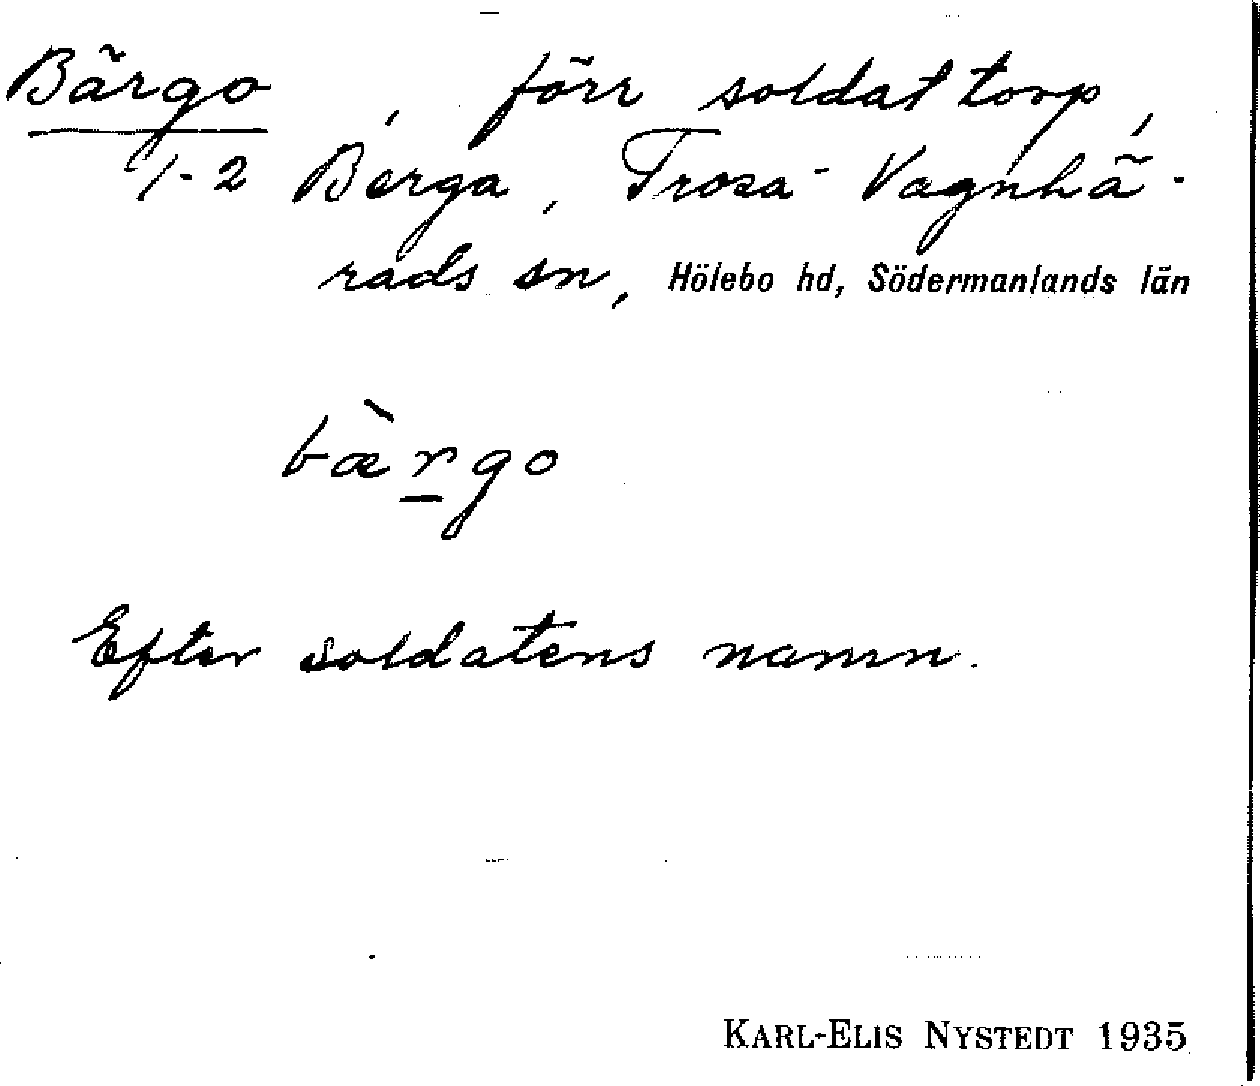 Bärgo, förr soldattorp,
1-2 Berga, Trosa-Vagnhä-
rads sn, Hölebo hd, Södermanlands län
bæ̀r̲go
Efter soldatens namn.
KARL-ELIS NYSTEDT 1935